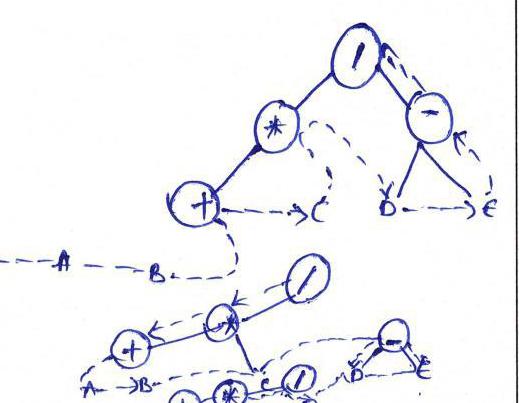 /
* -
+ C D E
A B
/
* -
+
A B C D E
* /